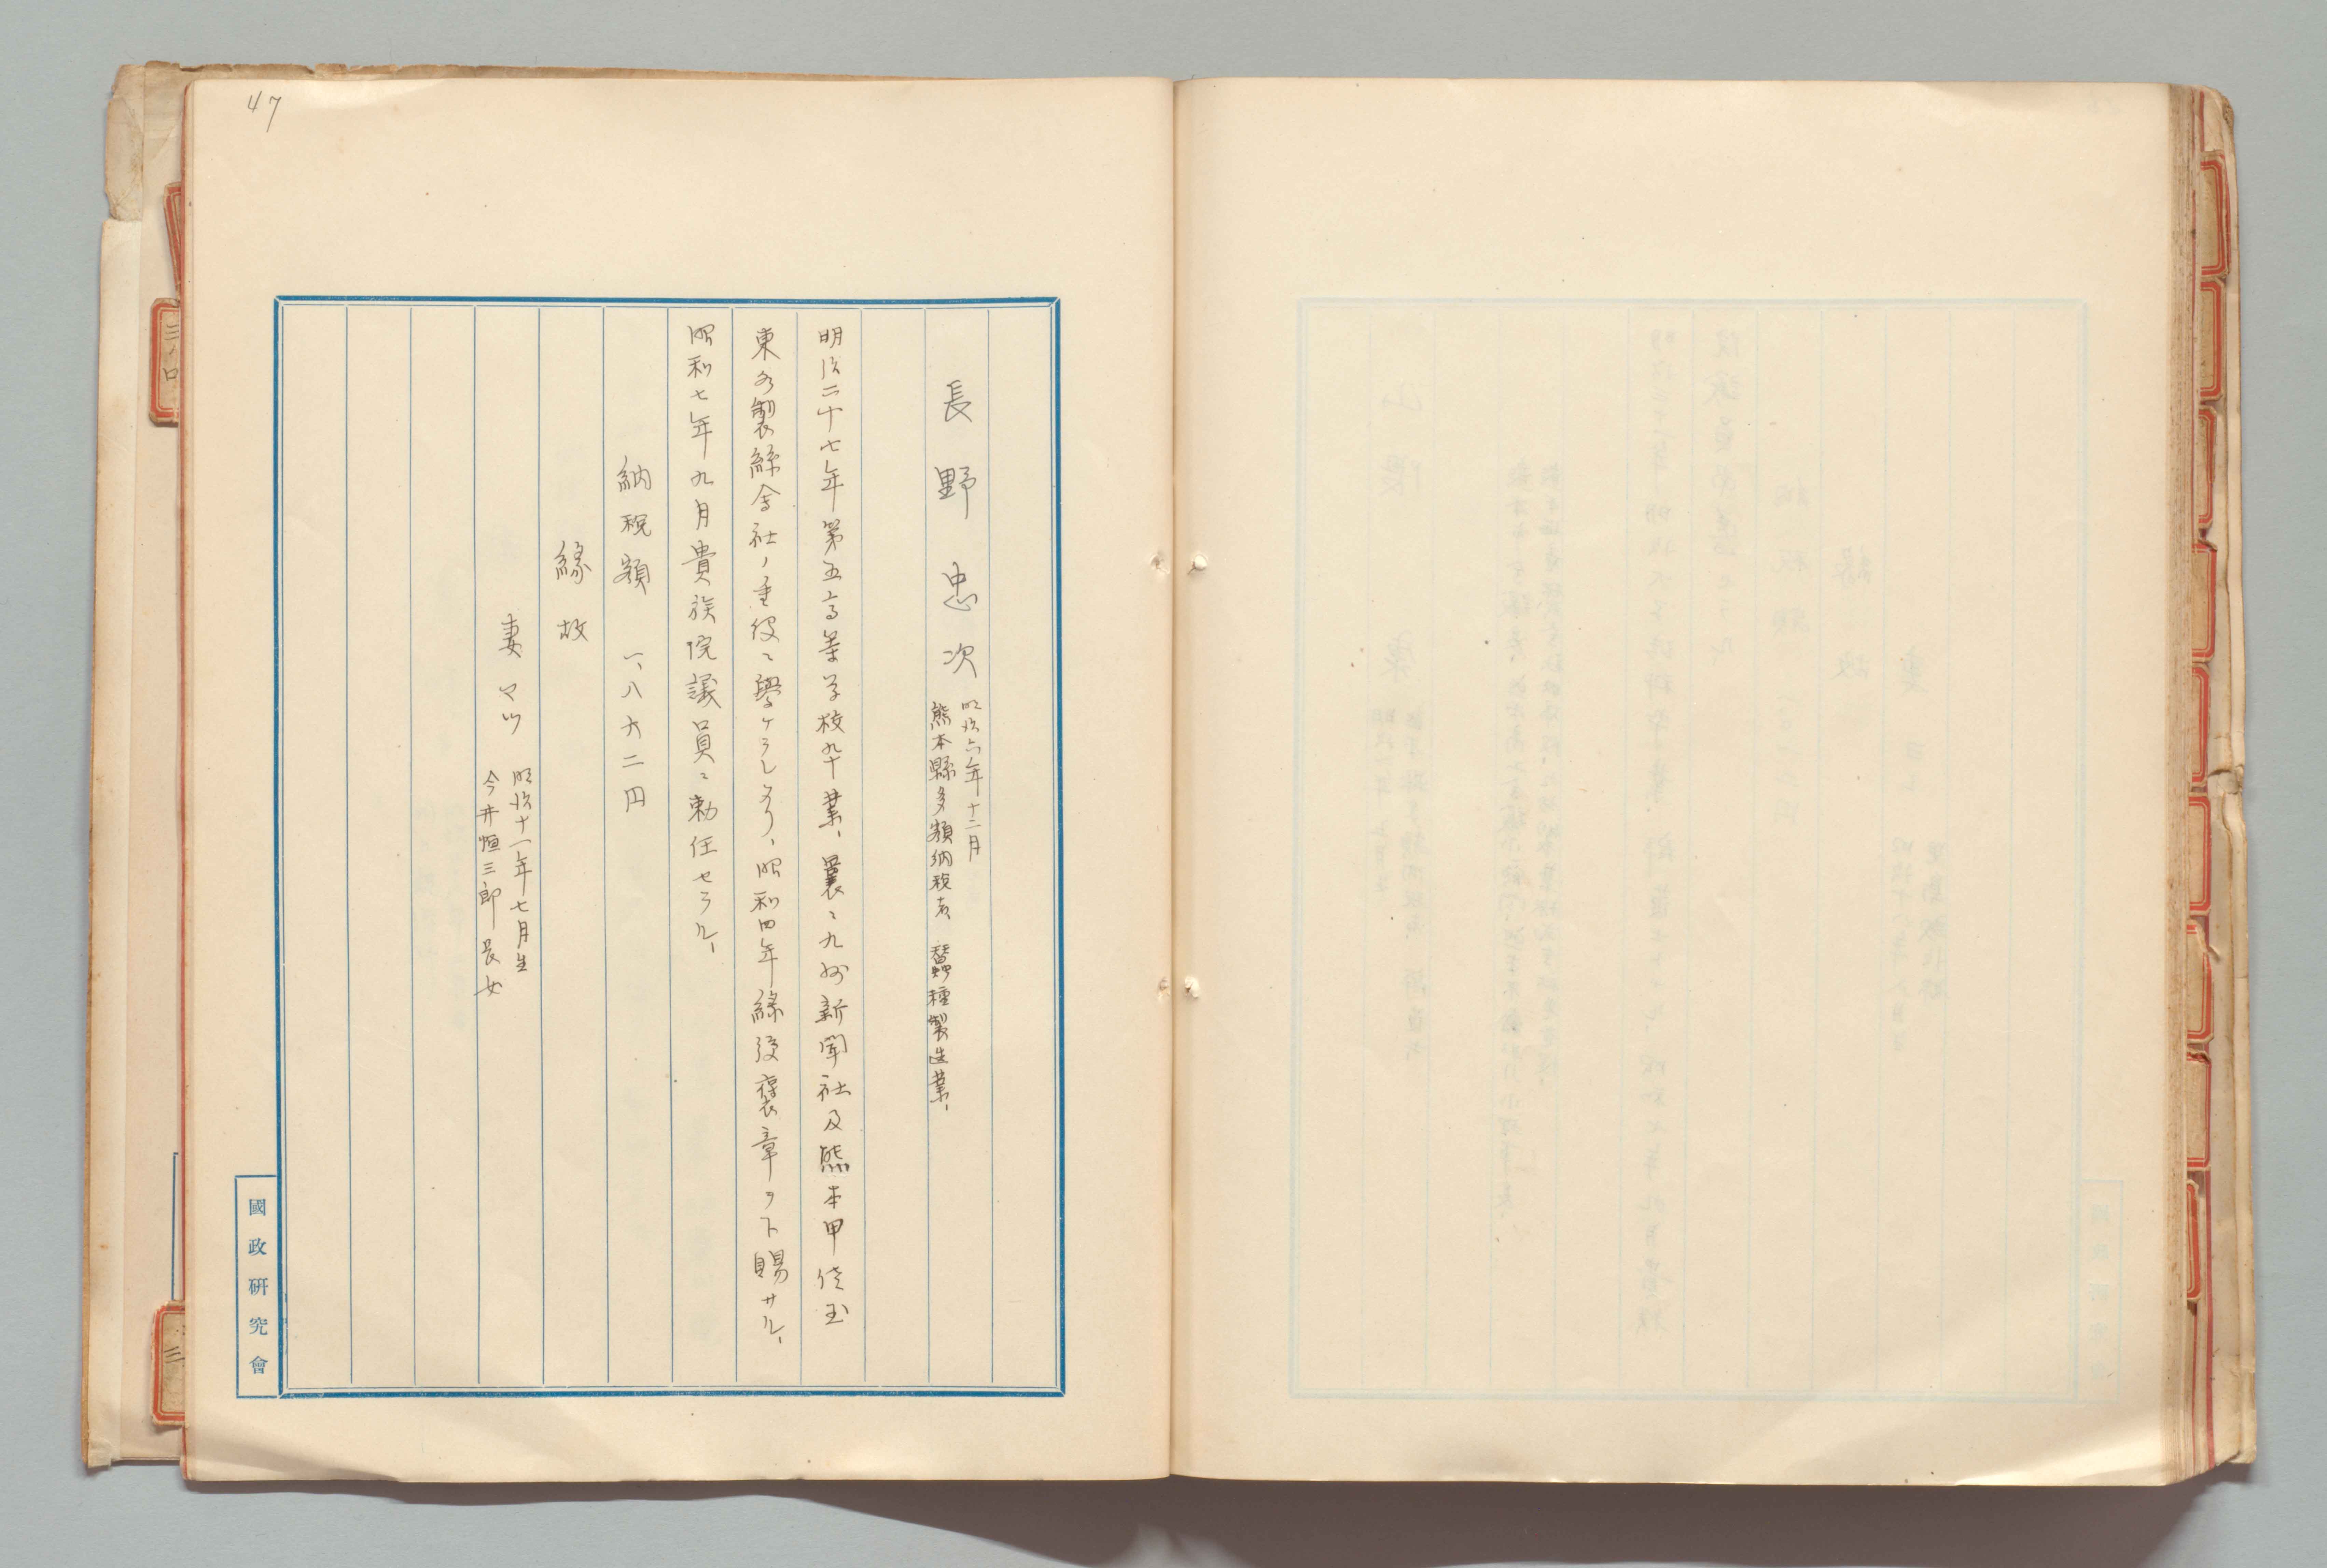 47
長野忠次
明治六年十二月
熊本縣多額納税者 蠶種製造業、
明治二十七年第五高等学校卒業、曩ニ九州新聞社及熊本甲佐玉
東各製絲会社ノ重役ニ擧ケラレタリ、昭和四年緑綬褒章ヲ下賜サル、
昭和七年九月貴族院議員ニ勅任セラル、
納税額 一、八六二円
縁故
妻マツ
明治十一年七月生
今井恒三郎長女
國政研究會